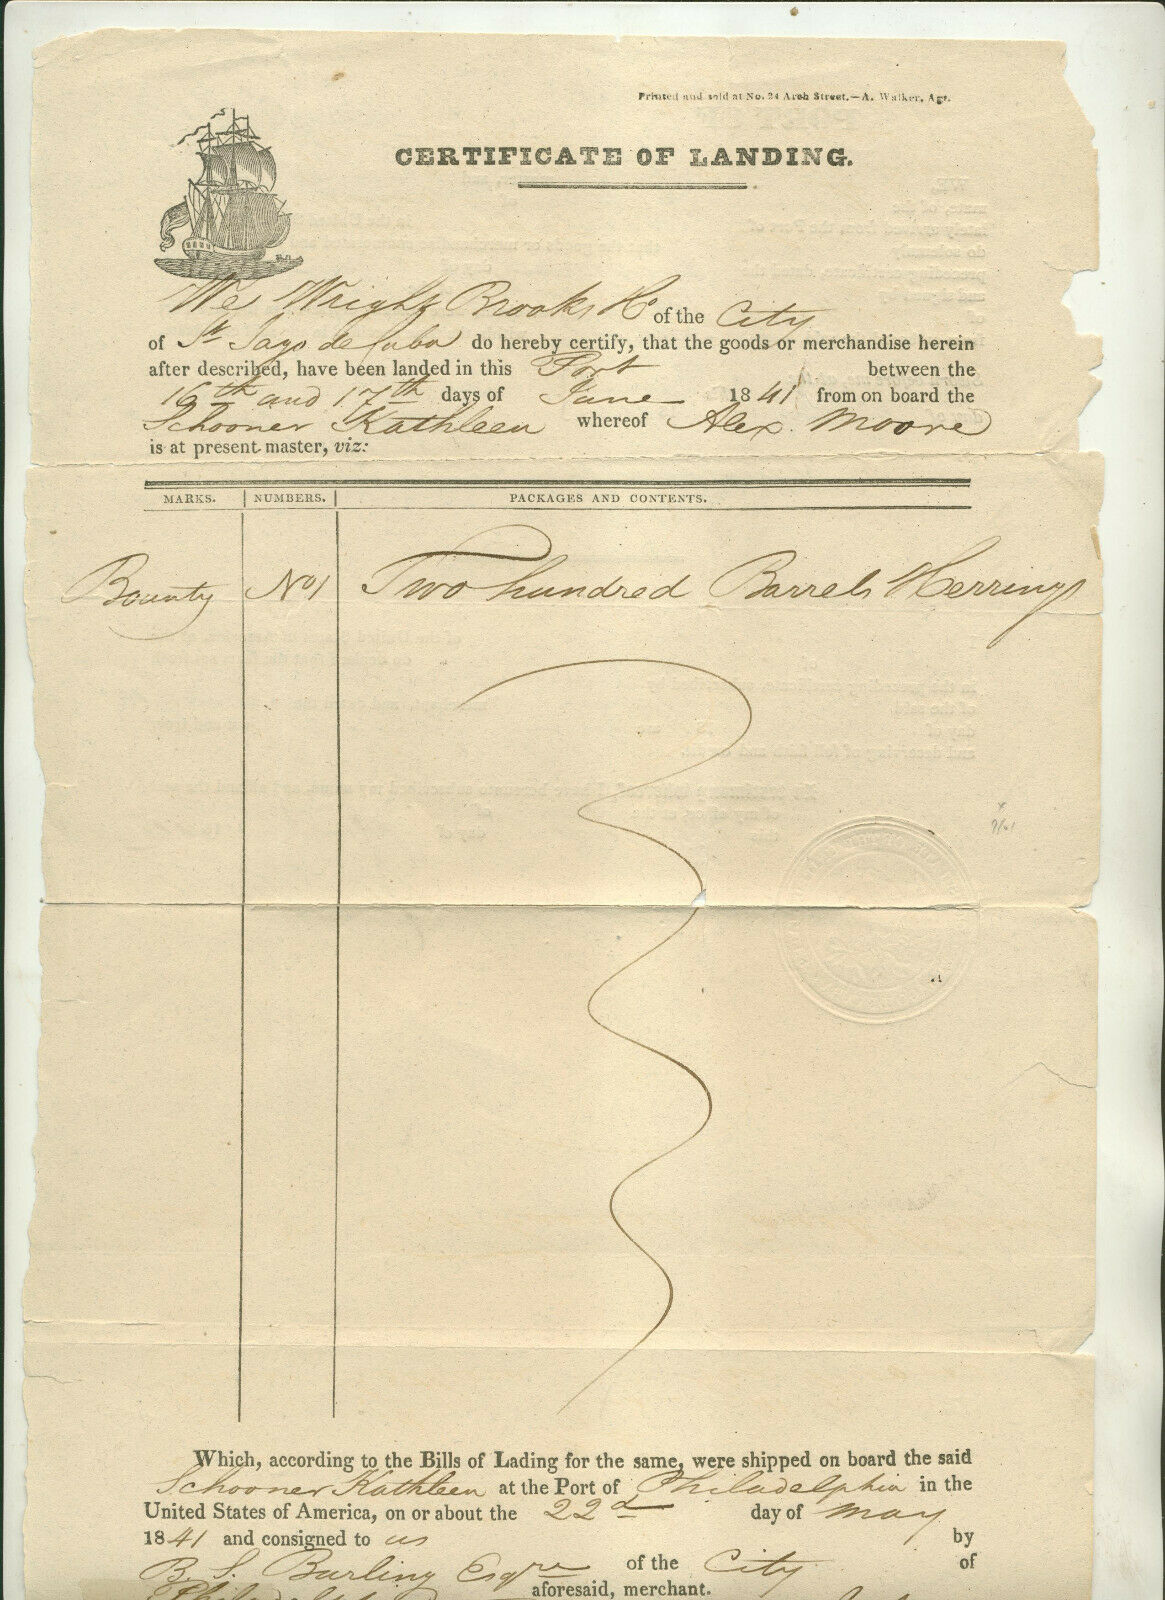 Printed and sold at No. 24 Arch Street.—A. Walker, Agt.
CERTIFICATE OF LANDING.
We Wright Brooks & Co of the City
of St Jago de Cuba do hereby certify, that the goods or merchandise herein
after described, have been landed in this Port between the
16th and 17th days of June 1841 from on board the
Schooner Kathleen whereof Alex. Moore
is at present master, viz:
MARKS. NUMBERS. PACKAGES AND CONTENTS.
Bounty No 1 Two hundred Barrels Herrings
Which, according to the Bills of Lading for the same, were shipped on board the said
Schooner Kathleen at the Port of Philadelphia in the
United States of America, on or about the 22d day of May
1841 and consigned to us by
B. S. Burling Esqre of the City of
Philadelphia aforesaid, merchant.